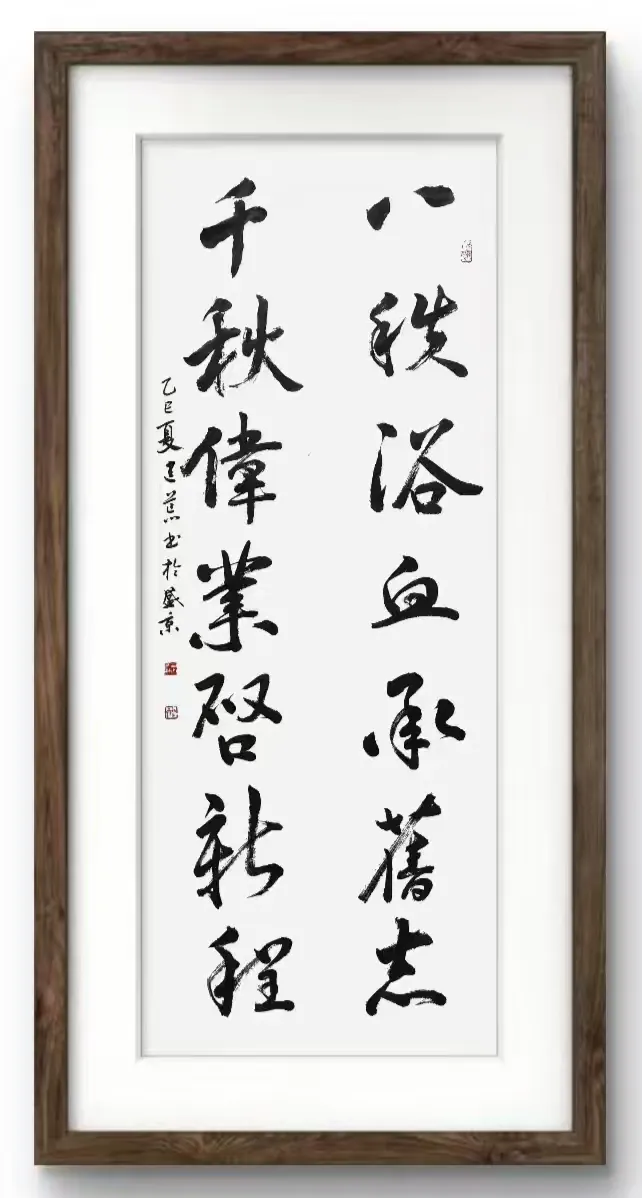 八秩浴血承舊志
千秋偉業啓新程
乙巳夏 書於盛京